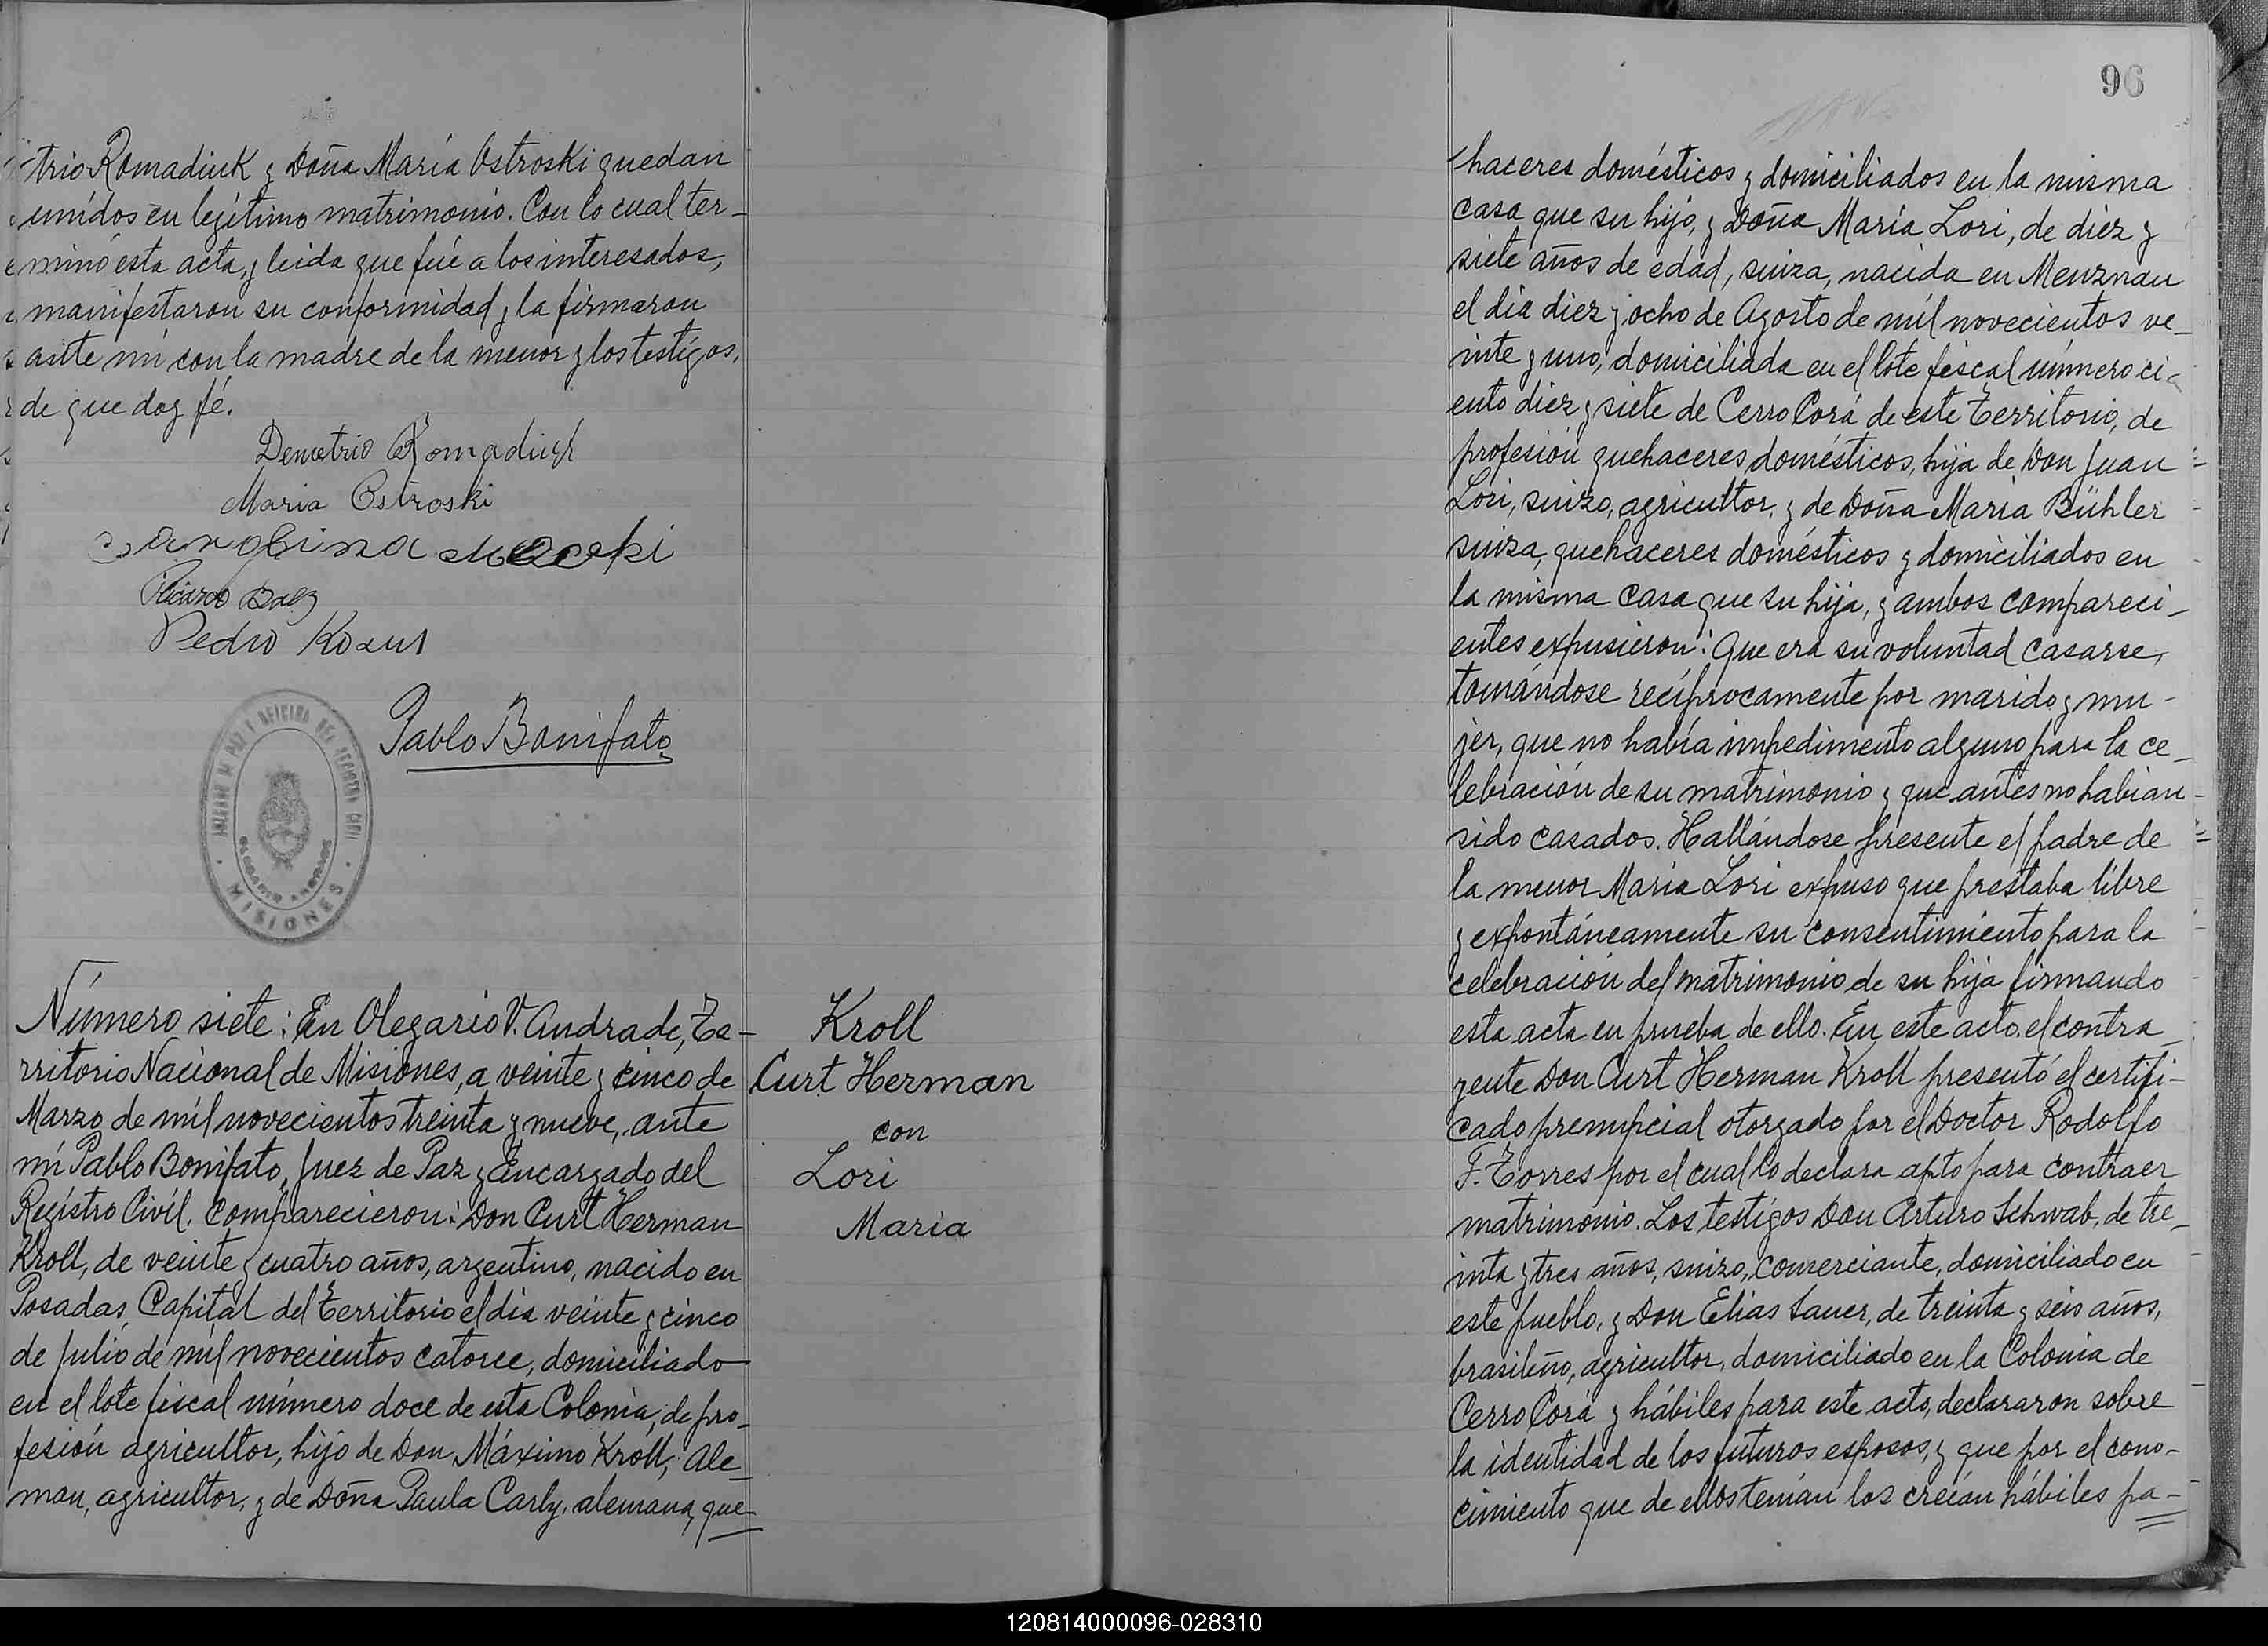 trio Romadiuk y Doña María Ostroski quedan
unídos en legítimo matrimonio. Con lo cual ter-
minó esta acta, y leida que fué a los interesados,
manifestaron su conformidad y la firmaron
ante mí con la madre de la menor y los testígos,
de que doy fé.
Demetrio Romadiuk
Maria Ostroski
Ricardo Baez
Pedro Kozus
Pablo Bonifato
JUZGADO DE PAZ Y OFICINA DEL REGISTRO CIVIL
OLEGARIO V. ANDRADE
MISIONES
Número siete: En Olegario V. Andrade, Te-
rritorio Nacional de Misiones, a veinte y cinco de
Marzo de mil novecientos treinta y nueve, ante
mí Pablo Bonifato, Juez de Paz y Encargado del
Regístro Civíl, comparecieron: Don Curt Herman
Kroll, de veinte y cuatro años, argentino, nacido en
Posadas, Capital del Territorio el día veinte y cinco
de Julio de mil novecientos catorce, domiciliado
en el lote fiscal número doce de esta Colonia, de pro-
fesión agricultor, hijo de Don Máximo Kroll, ale-
man, agricultor, y de Doña Paula Carly, alemana, que
Kroll
Curt Herman
con
Lori
Maria
96
haceres domésticos y domiciliados en la misma
casa que su hijo, y Doña María Lori, de diez y
siete años de edad, suiza, nacida en Menznau
el día diez y ocho de Agosto de mil novecientos ve-
inte y uno, domiciliada en el lote fiscal número ci-
ento diez y siete de Cerro Corá de este Territorio, de
profesión quehaceres domésticos, hija de Don Juan
Lori, suizo, agricultor, y de Doña María Bühler
suiza, quehaceres domésticos y domiciliados en
la misma casa que su hija, y ambos compareci-
entes expusieron: Que era su voluntad casarse,
tomándose recíprocamente por marido y mu-
jer, que no había impedimento alguno para la ce-
lebración de su matrimonio y que antes no habian
sido casados. Hallándose presente el padre de
la menor María Lori expuso que prestaba libre
y expontáneamente su consentimiento para la
celebración del matrimonio de su hija firmando
esta acta en prueba de ello. En este acto el contra-
yente Don Curt Herman Kroll presentó el certifi-
cado prenupcial otorgado por el Doctor Rodolfo
F. Torres por el cual lo declara apto para contraer
matrimonio. Los testígos Don Arturo Schwab, de tre-
inta y tres años, suizo, comerciante, domiciliado en
este pueblo, y Don Elías Sauer, de treinta y seis años,
brasileño, agricultor, domiciliado en la Colonia de
Cerro Corá y hábiles para este acto, declararon sobre
la identidad de los futuros esposos, y que por el cono-
cimiento que de ellos tenían los creían hábiles pa-
120814000096-028310